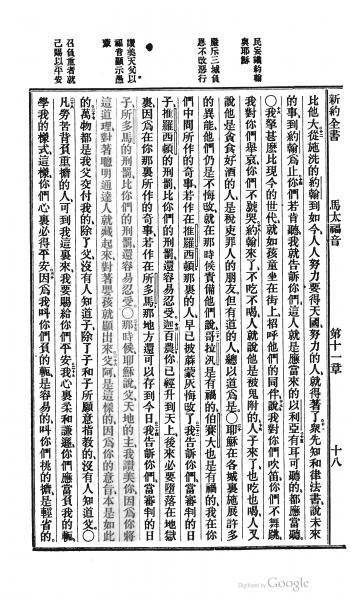 新約全書　馬太福音　第十一章　十八
民妄議約翰
與耶穌
嚴斥三城負
恩不改惡行
讚美天父以
福音顯示愚
蒙
召負重者就
己賜以平安
比他大從施洗的約翰到如今人人努力要得天國努力的人就得著了衆先知和律法書說未來
的事到約翰為止你們若肯聽我就告訴你們這人就是應當來的以利亞有耳可聽的都應當聽
〇我拏甚麼比現今的世代就如孩童坐在街上招呼他們的同伴說我對你們吹笛你們不舞跳
我對你們舉哀你們不號哭約翰來了不吃不喝人就說他是被鬼附的人子來了也吃也喝人又
說他是貪食好酒的人是稅吏罪人的朋友但有道的人總以道為是〇耶穌在各城裏施展許多
的異能他們仍是不悔改就在那時候責備他們說哥拉汎是有禍的伯賽大也是有禍的我在你
們中間所作的奇事若作在推羅西頓那裏的人早已披蔴蒙灰悔改了我告訴你們當審判的日
子推羅西頓的刑罰比你們的刑罰還容易忍受迦百農你已經升到天上後來必要墮落在地獄
裏因為在你那裏所作的奇事若作在所多馬那地方還可以存到今日我告訴你們當審判的日
子所多馬的刑罰比你們的刑罰還容易忍受〇那時候耶穌說父天地的主我讚美你因為你將
這道理對著聰明通達人就藏起來對著嬰孩就顯出來父阿是這樣的因為你的意旨本是如此
的萬物都是我父交付我的除了父沒有人知道子除了子和子所願意指教的沒有人知道父〇
凡勞苦背負重擔的人可到我這裏來我要賜給你們平安我心裏柔和謙遜你們應當負我的軛
學我的樣式這樣你們心裏必得平安因為我叫你們負的軛是容易的叫你們挑的擔是輕省的
Digitized by Google